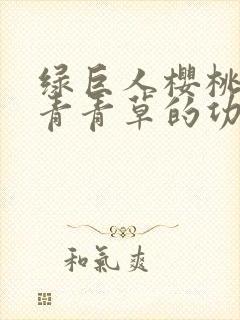 绿巨人樱桃
青青草的功
和氣爽